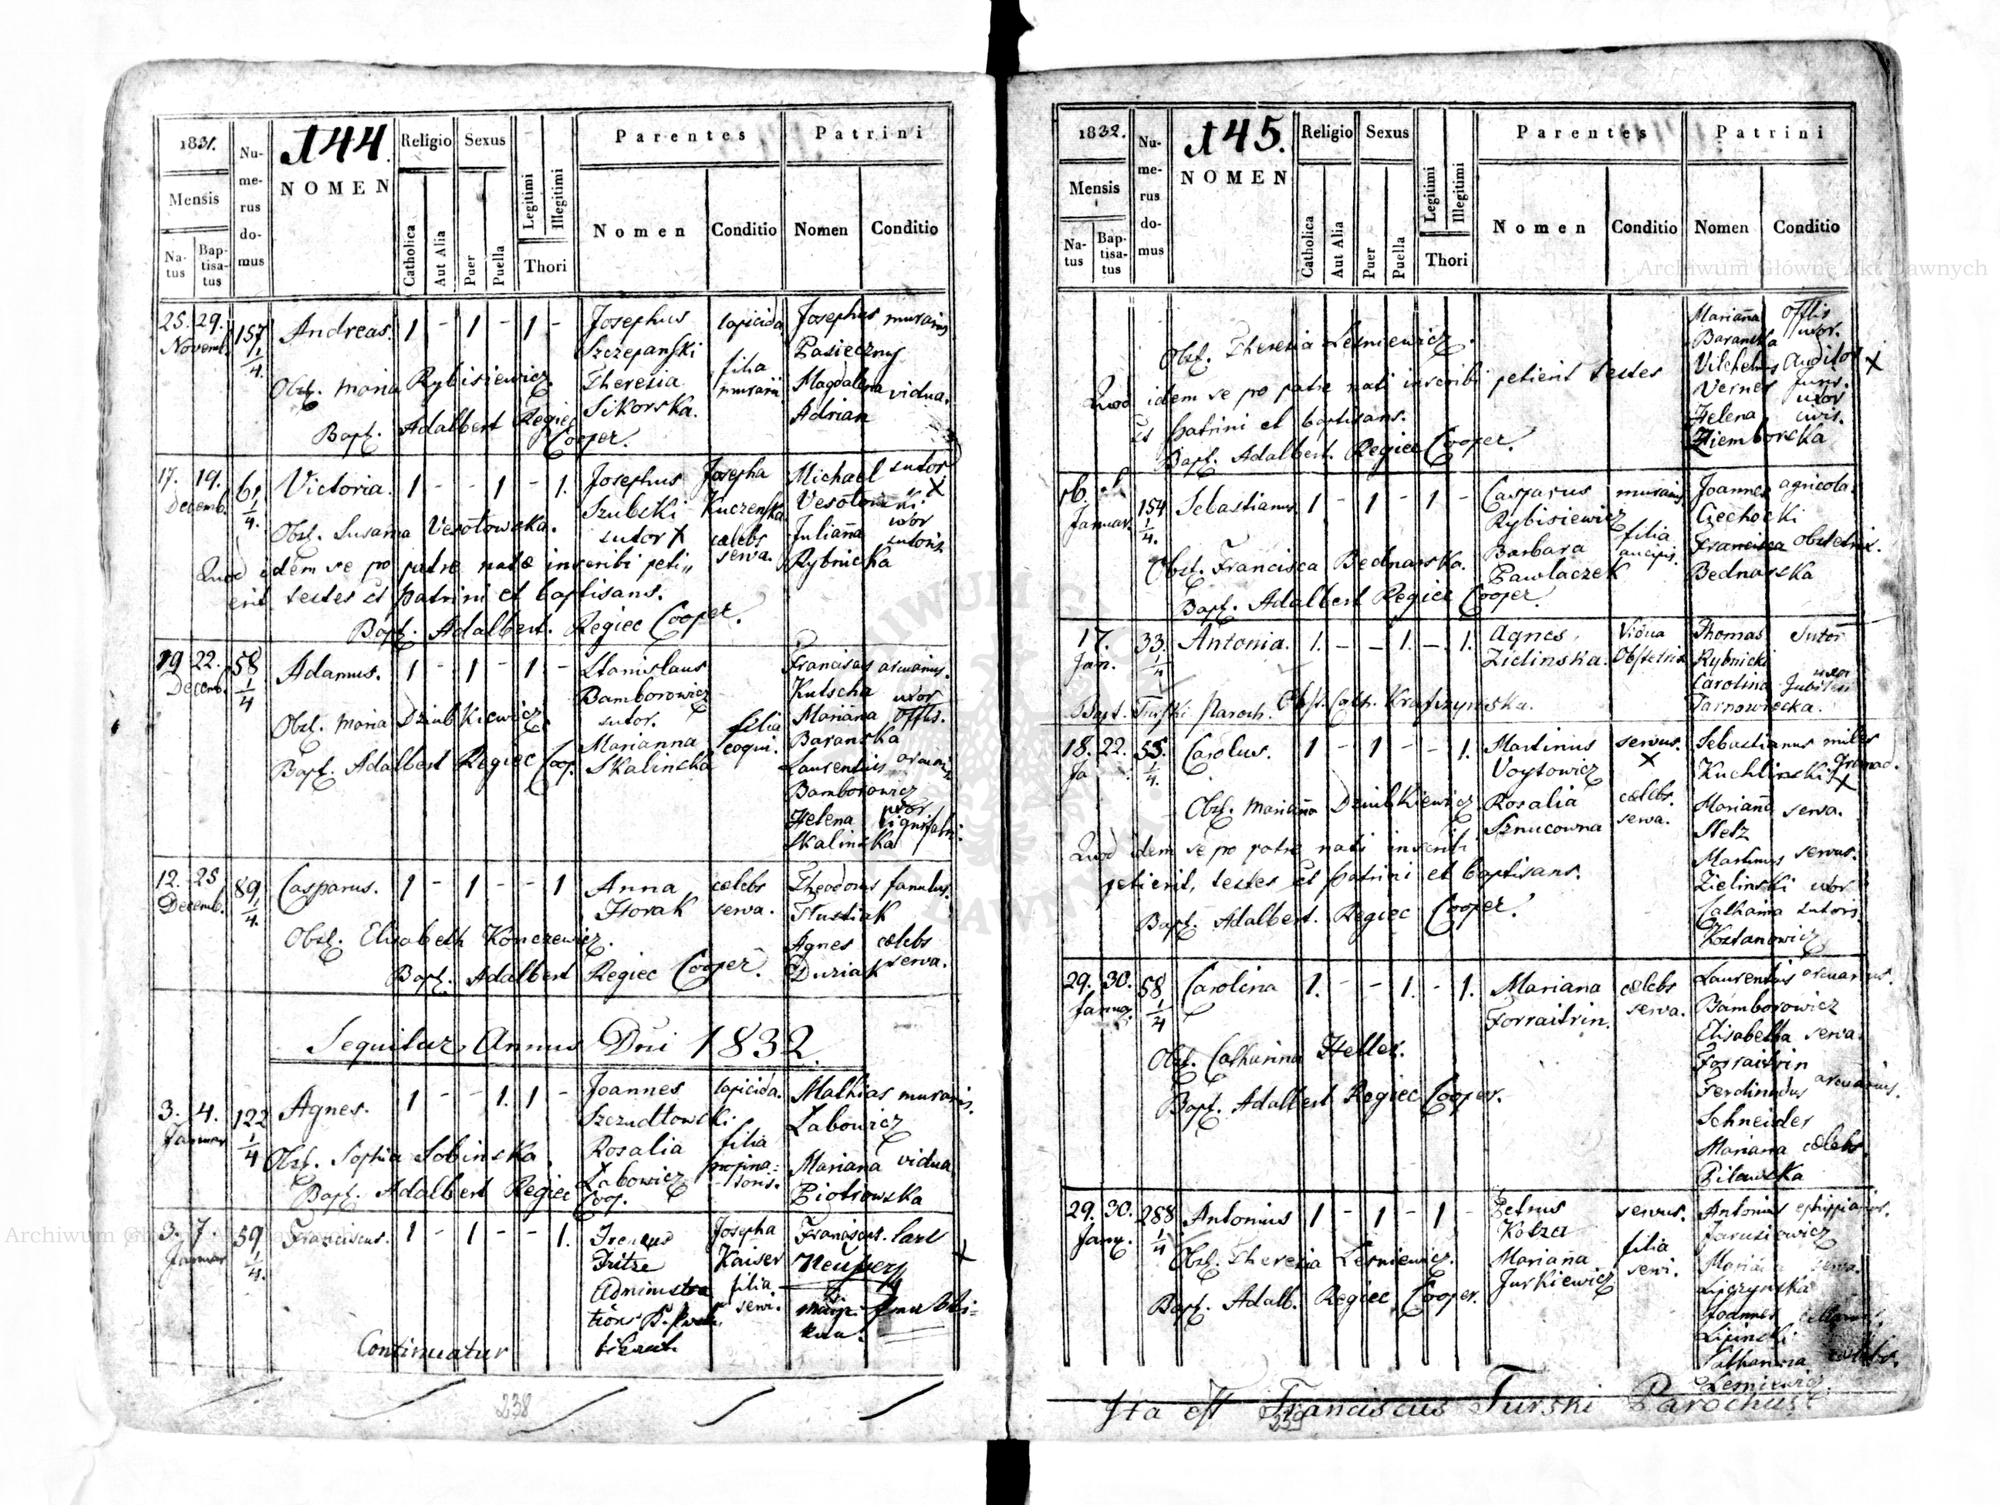 1831.
144.
Numerus domus
NOMEN
Religio
Sexus
Parentes
Patrini
Mensis
Natus
Baptisatus
Catholica
Aut Alia
Puer
Puella
Legitimi
Illegitimi
Thori
Nomen
Conditio
Nomen
Conditio
25. 29. 157 Andreas. 1 - 1 - 1 - Josephus lapicida Josephus
Novemb. 1/4. Szczepański Pasieczny
Obst. Maria Rybisiewicz. Theresia filia Magdalena vidua.
Sikorska. Adrian
Bapt. Adalbert Regiec
Cooper.
17. 19. 61 Victoria. 1 - - 1 - 1. Josephus Josepha Michael sutor
Decemb. 1/4. Szubski X
Obst. Susanna Vesołowska. sutor X cælebs Julianna uxor
serva. Rybnicka sutoris
Quod idem se po patre natæ inscribi peti
erit testes et patrini et baptisans.
Bapt. Adalbert. Regiec Cooper.
19 22. 58 Adamus. 1 - 1 - 1 - Stanislaus
Decemb. 1/4 Bamborowicz Kutscha
Obst. Maria Dziubkiewicz. sutor. Marianna uxor
Marianna filia Baranska offlis.
Bapt. Adalbert Regiec Coop. Skalinska coqui. Laurentius
Bamborowicz
Helena uxor
Skalinska
12. 25 89 Casparus. 1 - 1 - - 1 Anna cælebs Theodorus famulus.
Decemb. 1/4. Horak serva. Tłustiak
Obst. Elisabeth Konczewicz. Agnes cælebs
Bapt. Adalbert Regiec Cooper. Duziak serva.
Sequitur Annus Dni 1832.
3. 4. 122 Agnes. 1 - - 1. 1 - Joannes lapicida. Mathias
Januar 1/4 Szczudłowski Łabowicz
Obst. Sophia Sobinska. Rosalia filia Mariana vidua
Łabowicz Piotrowska
Bapt. Adalbert Regiec Coop.
3. 7 59 Franciscus. 1 - 1 - - 1. Josepha Franciscus Carl
Januar 1/4. Fritze Kaiser X
filia
servi.
Continuatur
238
1832.
145.
Numerus domus
NOMEN
Religio
Sexus
Parentes
Patrini
Mensis
Natus
Baptisatus
Catholica
Aut Alia
Puer
Puella
Legitimi
Illegitimi
Thori
Nomen
Conditio
Nomen
Conditio
Marianna offlis
Obst. Theresia Lesniewicz. Baranska uxor.
Vilhelmus X
Quod idem se po patre nati inscribi petierit testes Verner
et patrini et baptisans. Helena uxor
Bapt. Adalbert. Regiec Cooper. Ziemborska civis.
154 Sebastianus. 1 - 1 - 1 - Casparus Joannes agricola.
Januar. 1/4. Rybisiewicz filia Ciechocki
Barbara Francisca obstetrix.
Obst. Francisca Bednarska. Pawlaczek Bednarska
Bapt. Adalbert Regiec Cooper.
17. 33. Antonia. 1. - - 1. - 1. Agnes Vidua Thomas Sutor
Jan. 1/4 Zielinska. Obstetrix Rybnicki
Carolina uxor
Bapt. Turski Paroch. Obst. Cath. Krafczynska. Tarnowiecka.
18. 22. 55. Carolus. 1 - 1 - - 1. Martinus servus. Sebastianus miles
Ja 1/4. Voytowicz X Kuchlinski X
Obst. Marianna Dziubkiewicz Rosalia cælebs. Marianna serva.
Sznucowna serva. Stelz
Quod idem se po patre nati inscribi Martinus servus.
petierit, testes et patrini et baptisans. Zielinski uxor
Bapt. Adalbert. Regiec Cooper. sutoris
Kostanowicz
29. 30. 58 Carolina 1. - - 1. - 1. Mariana cælebs Laurentius
Janua. 1/4 Forraitrin. serva. Bamborowicz
Elisabetha serva
Obst. Catharina Heller. Forraitrin
Bapt. Adalbert Regiec Cooper. Ferdinandus
Schneider
Mariana cælebs.
Pilawska
29. 30. 288 Antonius 1 - 1 - 1 - Petrus servus. Antonius
Janu. 1/4 Kobza Jarusiewicz
Obst. Theresia Lesniewicz. Marianna filia
Jurkiewicz servi. Lipczynska
Bapt. Adalb. Regiec, Cooper. Joannes
Lipinski
Catharina
Lesniewicz.
Ita est Franciscus Turski Parochus
239
Archiwum Główne Akt Dawnych